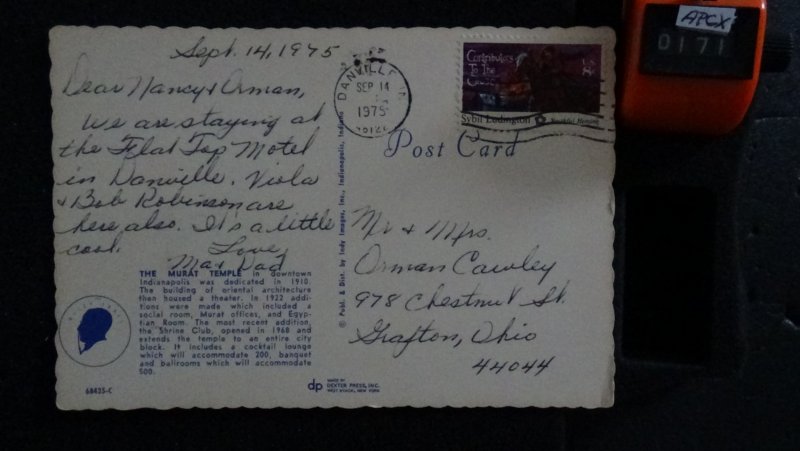 Sept. 14, 1975
Dear Nancy & Orman,
We are staying at
the Flat Top Motel
in Danville. Viola
& Bob Robinson are
here also. It's a little
cool.
Love,
Ma & Dad
THE MURAT TEMPLE in downtown
Indianapolis was dedicated in 1910.
The building of oriental architecture
then housed a theater. In 1922 addi-
tions were made which included a
social room, Murat offices, and Egyp-
tian Room. The most recent addition,
the Shrine Club, opened in 1968 and
extends the temple to an entire city
block. It includes a cocktail lounge
which will accommodate 200, banquet
and ballrooms which will accommodate
500.
68425-C
© Publ. & Dist. by Indy Images, Inc., Indianapolis, Indiana
dp
MADE BY
DEXTER PRESS, INC.
WEST NYACK, NEW YORK
DANVILLE, IN
SEP 14
1975
46122
Contributors
To The
Cause
US
8c
Sybil Ludington
Youthful Heroine
Post Card
Mr & Mrs.
Orman Cawley
978 Chestnut St.
Grafton, Ohio
44044
APCX
0171